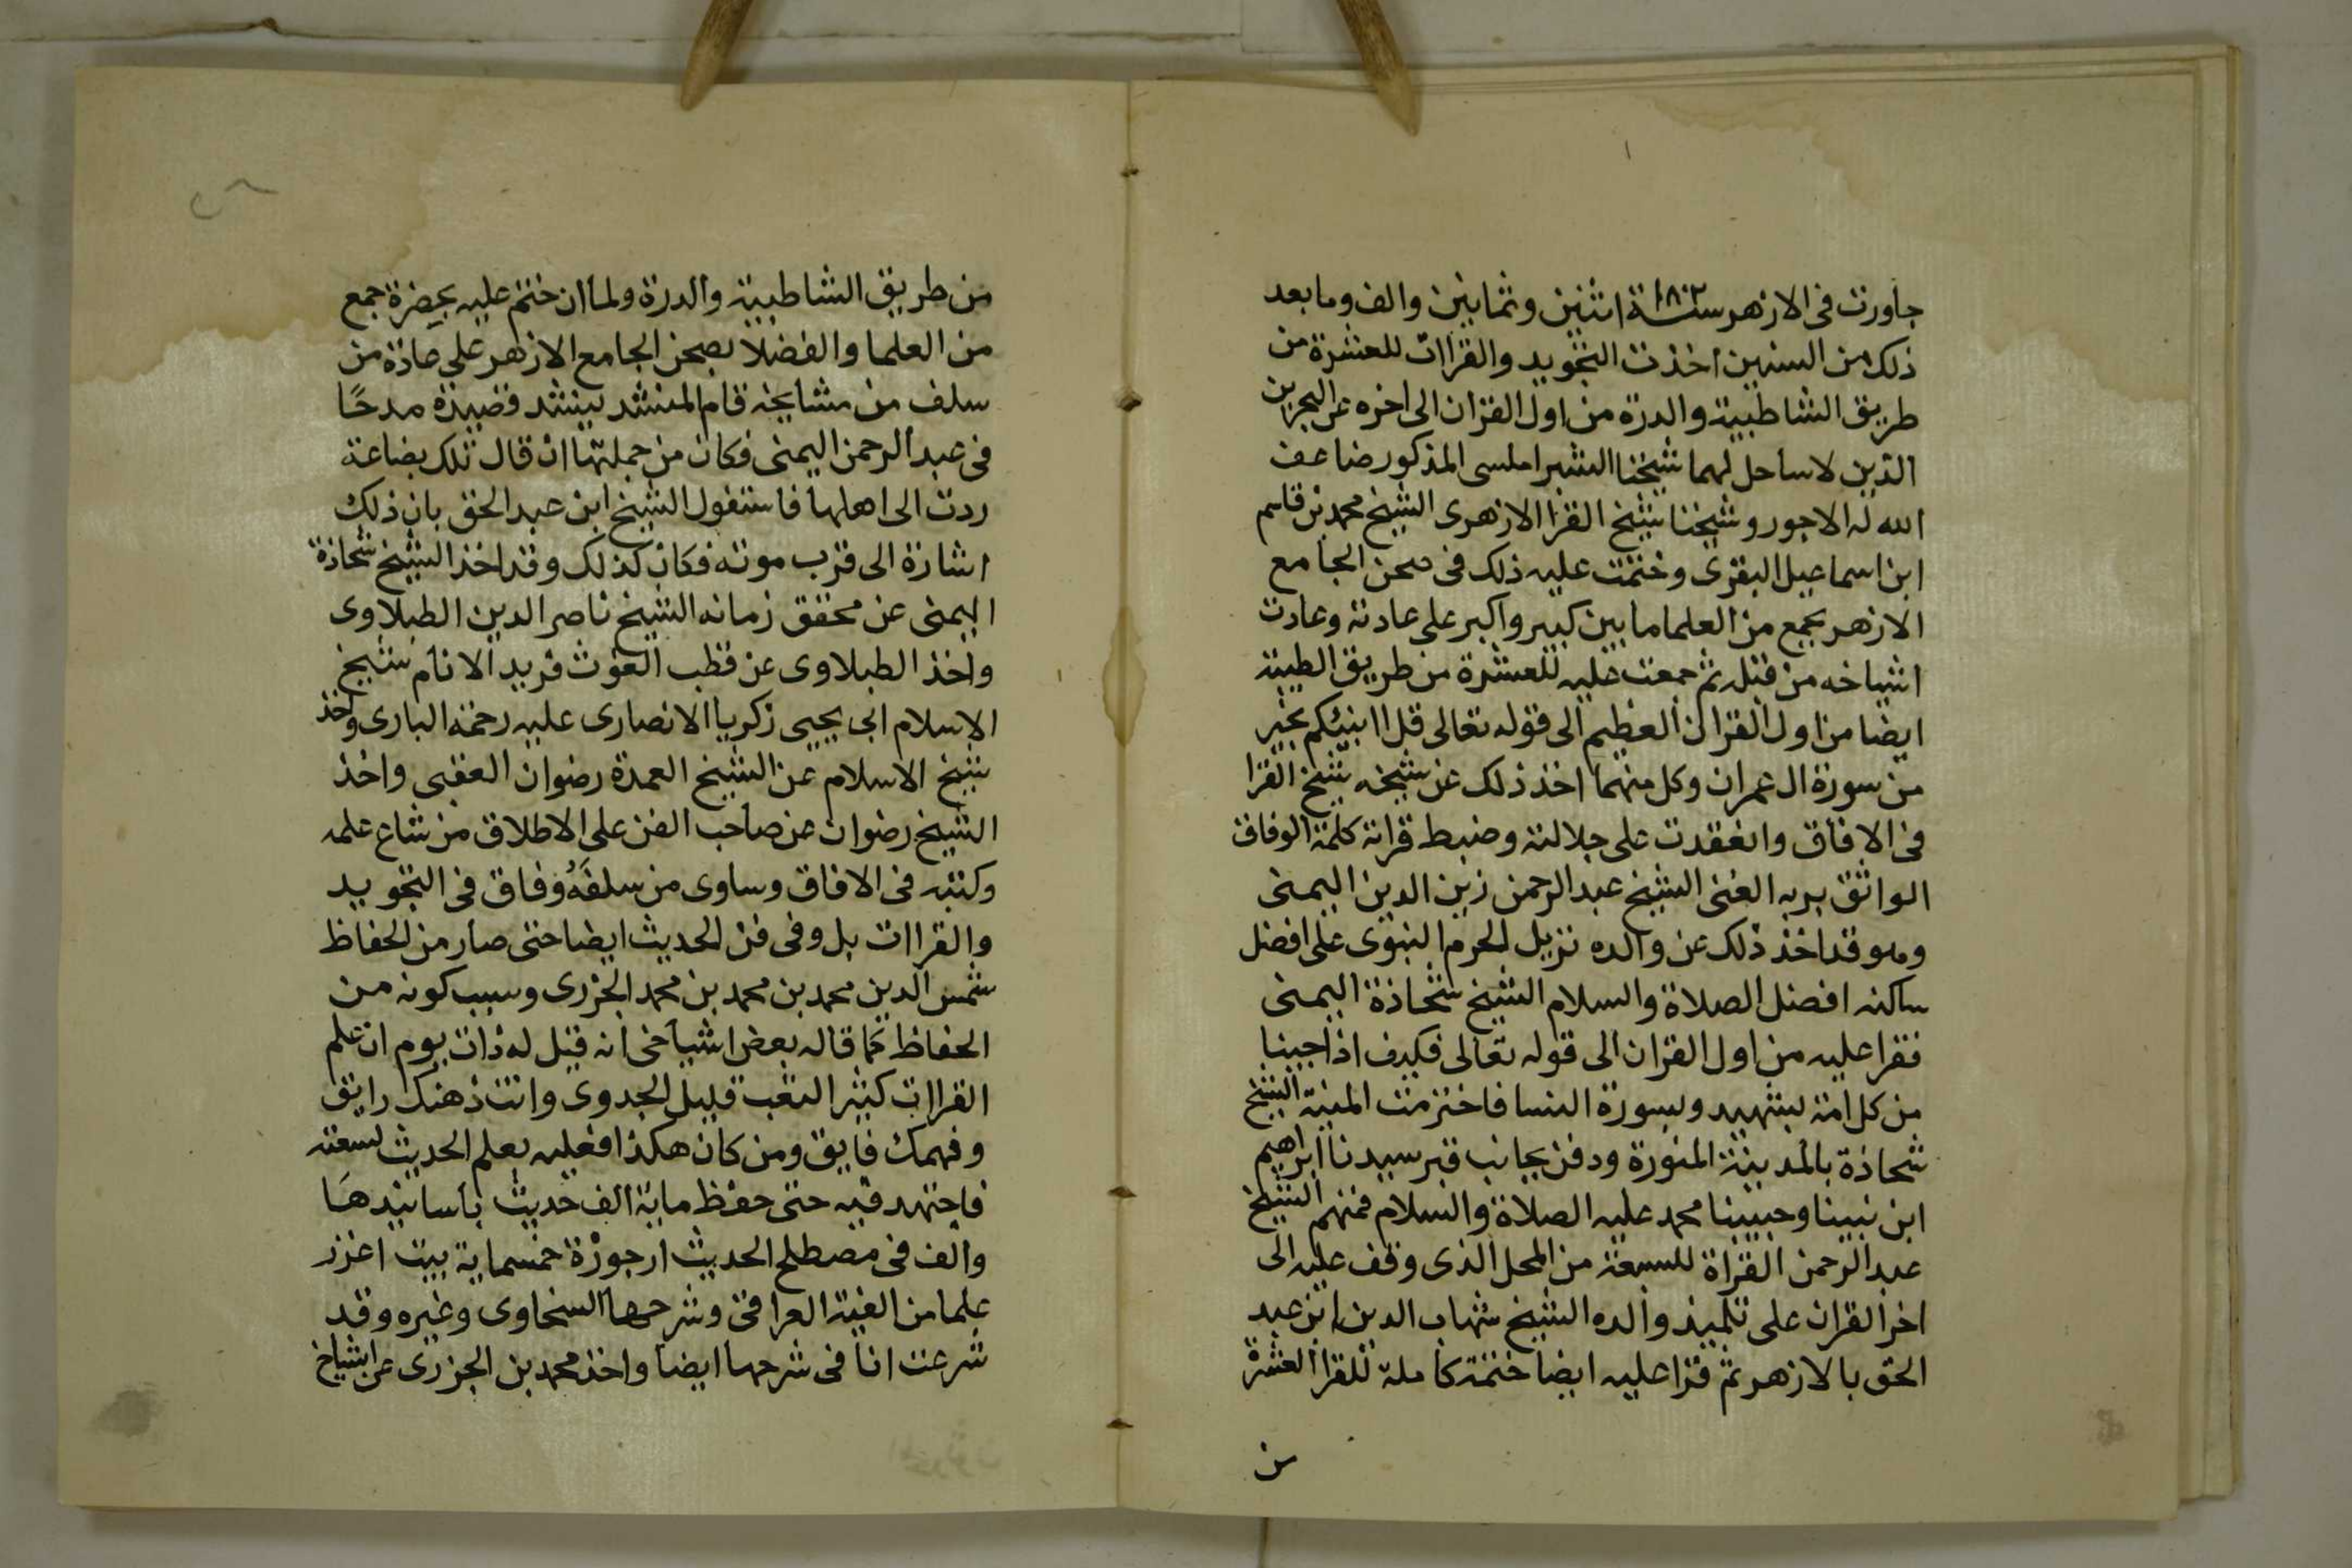 جاورت فى الازهر سنة ١٠٨٢ اثنين وثمانين والف وما بعد
ذلك من السنين اخذت التجويد والقراات للعشرة من
طريق الشاطبية والدرة من اول القران الى اخره عن البحرين
الذين لا ساحل لهما شيخنا الشبراملسى المذكور ضاعف
الله له الاجور وشيخنا شيخ القرا الازهرى الشيخ محمد بن قاسم
ابن اسماعيل البقرى وختمت عليه ذلك فى صحن الجامع
الازهر بجمع من العلما ما بين كبير واكبر على عادته وعادت
اشياخه من قبله ثم جمعت عليه للعشرة من طريق الطيبة
ايضا من اول القران العظيم الى قوله تعالى قل اانبئكم بخير
من سورة ال عمران وكل منهما اخذ ذلك عن شيخه شيخ القرا
فى الافاق وانعقدت على جلالته وضبط قراته كلمة الوفاق
الواثق بربه الغنى الشيخ عبد الرحمن زين الدين اليمنى
وهو قد اخذ ذلك عن والده نزيل الحرم النبوى على افضل
ساكنه افضل الصلاة والسلام الشيخ شحاذة اليمنى
فقرا عليه من اول القران الى قوله تعالى فكيف اذا جينا
من كل امة بشهيد وبسورة النسا فاخترمت المنية الشيخ
شحاذة بالمدينة المنورة ودفن بجانب قبر سيدنا ابراهيم
ابن نبينا وحبيبنا محمد عليه الصلاة والسلام فمنهم الشيخ
عبد الرحمن القراة للسبعة من المحل الذى وقف عليه الى
اخر القران على تلميذ والده الشيخ شهاب الدين ابن عبد
الحق بالازهر ثم قرا عليه ايضا ختمة كاملة للقرا العشرة
من
من طريق الشاطبية والدرة ولما ان ختم عليه بحضرة جمع
من العلما والفضلا بصحن الجامع الازهر على عادة من
سلف من مشايخه قام المنشد ينشد قصيدة مدحًا
فى عبد الرحمن اليمنى فكان من جملتها ان قال تلك بضاعة
ردت الى اهلها فاستفول الشيخ ابن عبد الحق بان ذلك
اشارة الى قرب موته فكان كذلك وقد اخذ الشيخ شحاذة
اليمنى عن محقق زمانه الشيخ ناصر الدين الطبلاوى
واخذ الطبلاوى عن قطب الغوث فريد الانام شيخ
الاسلام ابى يحيى زكريا الانصارى عليه رحمة البارى واخذ
شيخ الاسلام عن الشيخ العمدة رضوان العقبى واخذ
الشيخ رضوان عن صاحب الفن على الاطلاق من شاع علمه
وكتبه فى الافاق وساوى من سلفَهُ وفاق فى التجويد
والقراات بل وفى فن الحديث ايضا حتى صار من الحفاظ
شمس الدين محمد بن محمد بن محمد الجزرى وسبب كونه من
الحفاظ كما قاله بعض اشياخى انه قيل له ذات يوم ان علم
القراات كثير التعب قليل الجدوى وانت ذهنك رايق
وفهمك فايق ومن كان هكذا فعليه بعلم الحديث لسعته
فاجتهد فيه حتى حفظ ماية الف حديث باسانيدهَا
والف فى مصطلح الحديث ارجوزة خمسماية بيت اغزر
علما من الفية العراقى وشرحها السخاوى وغيره وقد
شرعت انا فى شرحها ايضا واخذ محمد بن الجزرى عن اشياخ